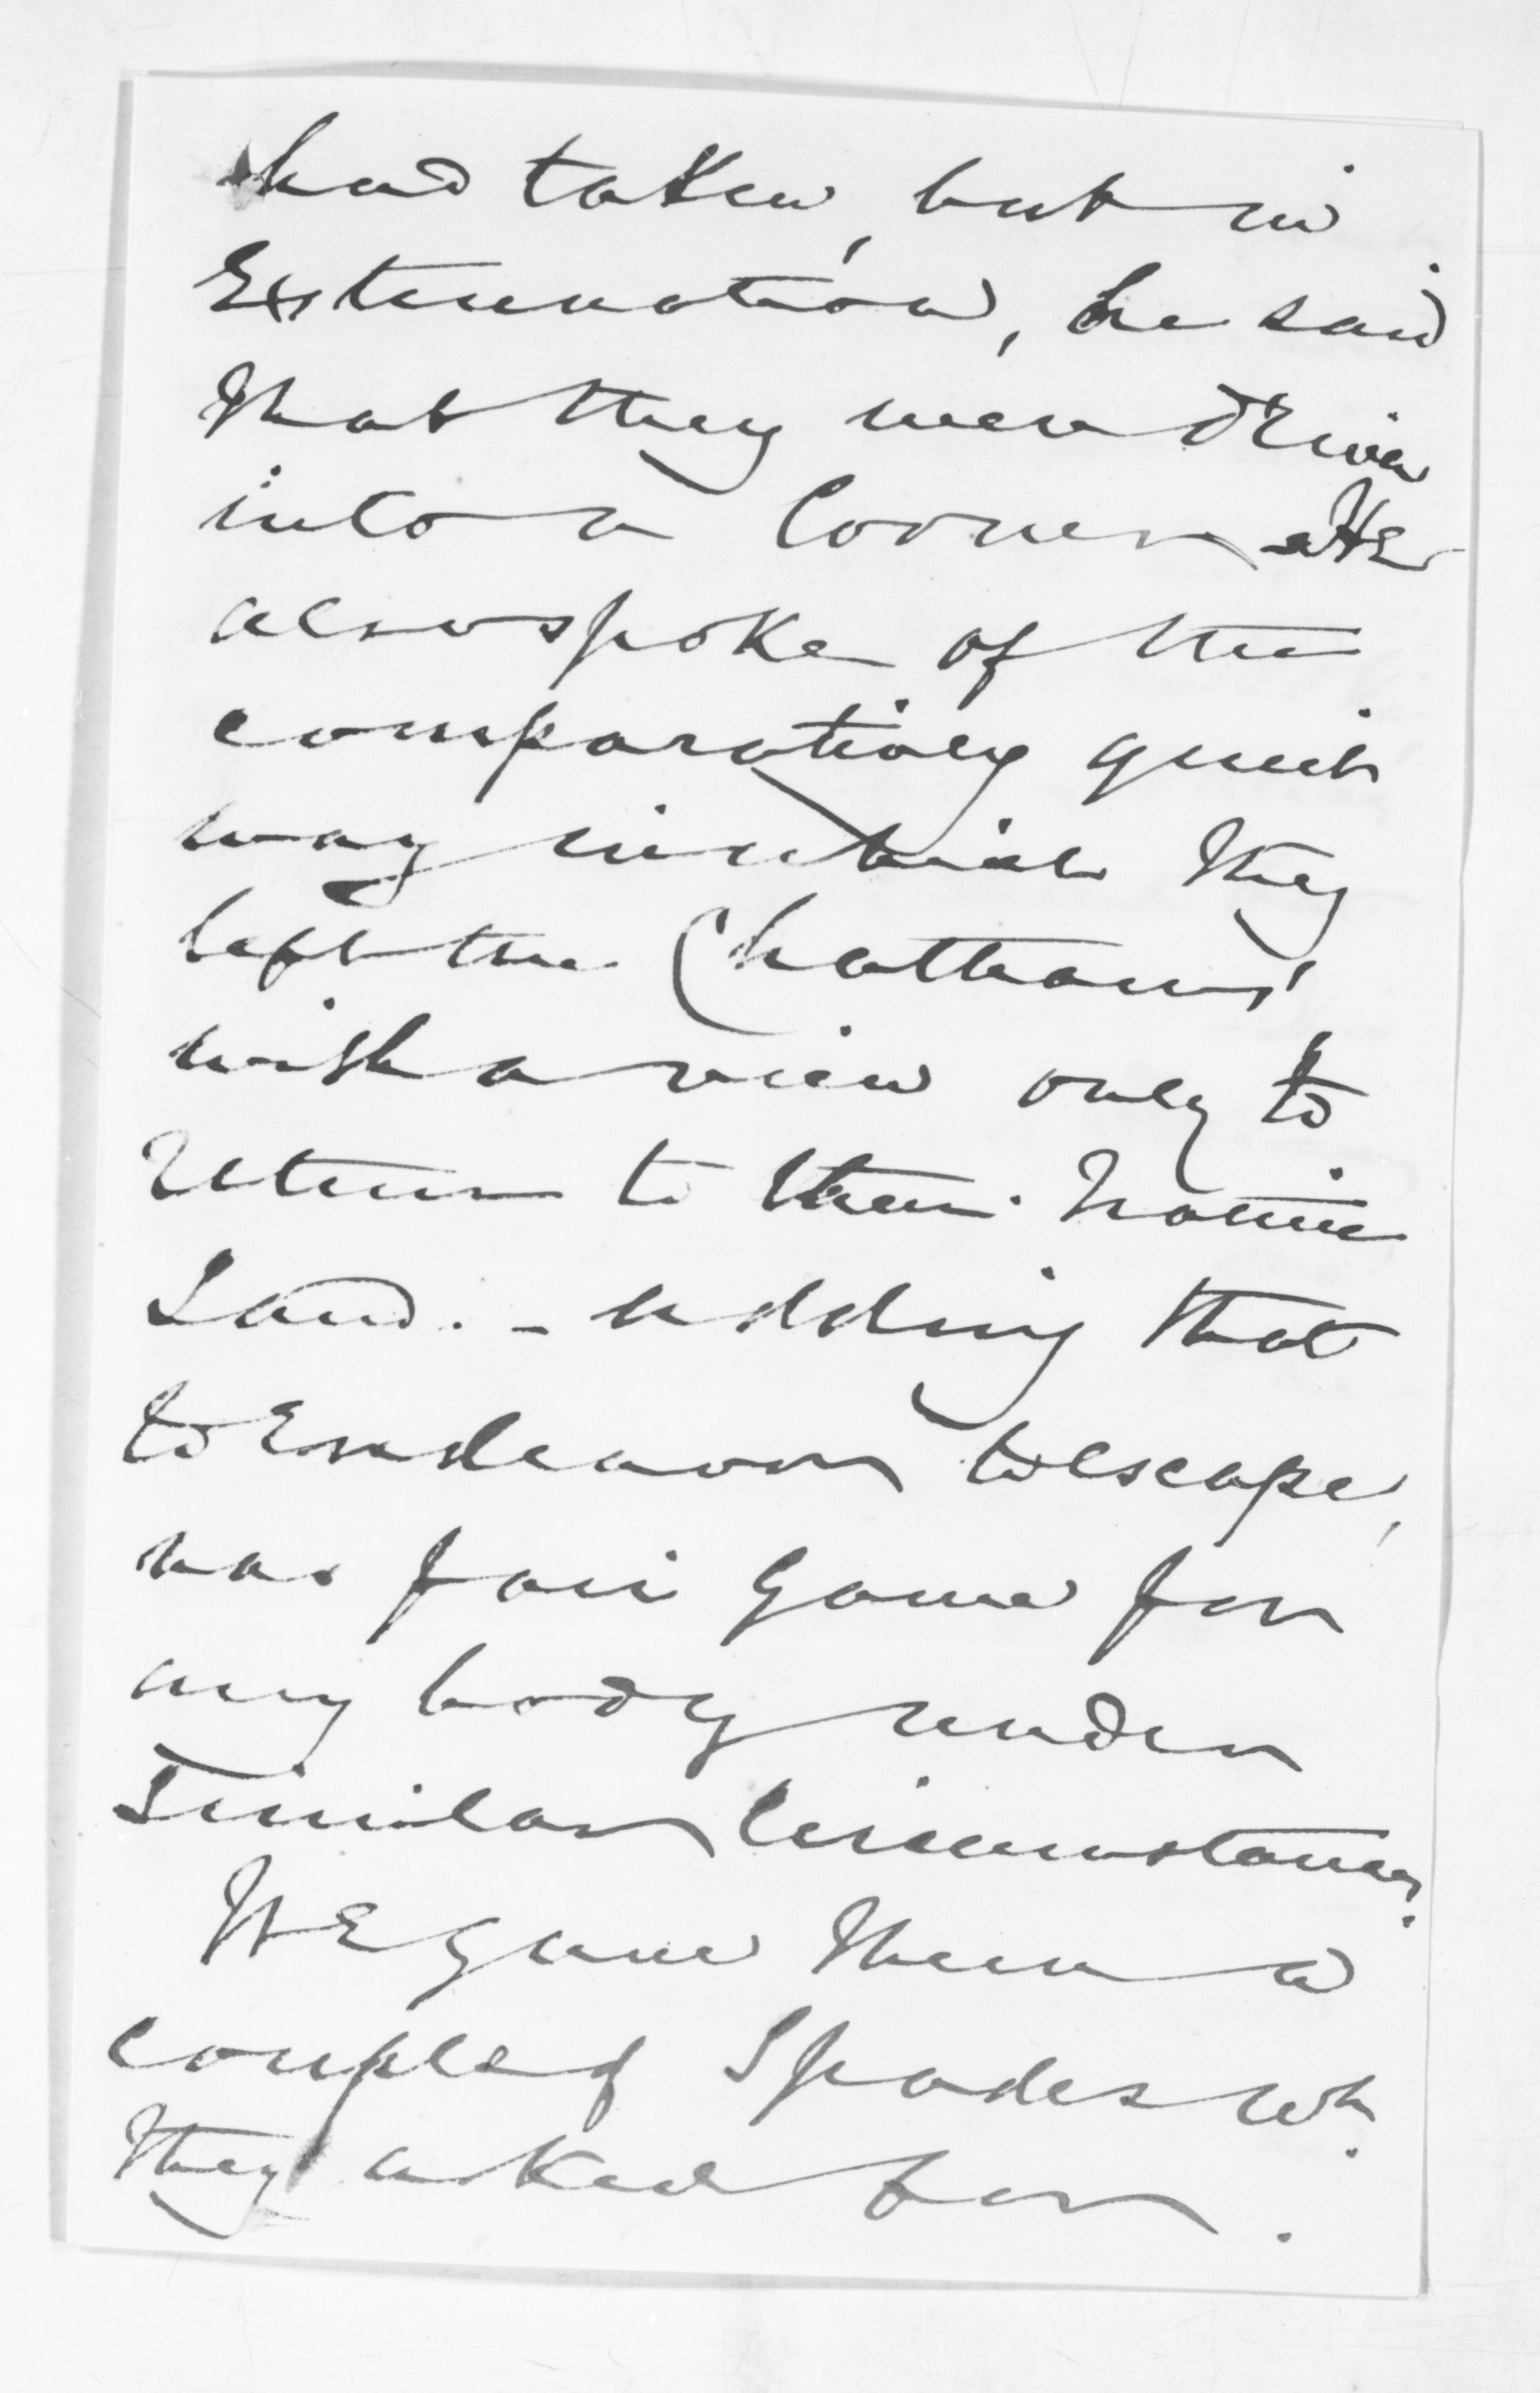 had taken, but in
Extenuation, he said
that they were driven
into a Corner - He
also spoke of the
comparatively quiet
way in which they
left the Chathams
with a view only to
return to their Native
Land. - adding that
to Endeavour to escape,
was fair game for
any body under
Similar Circumstances.
We gave them a
couple of Spades wh.
they asked for.